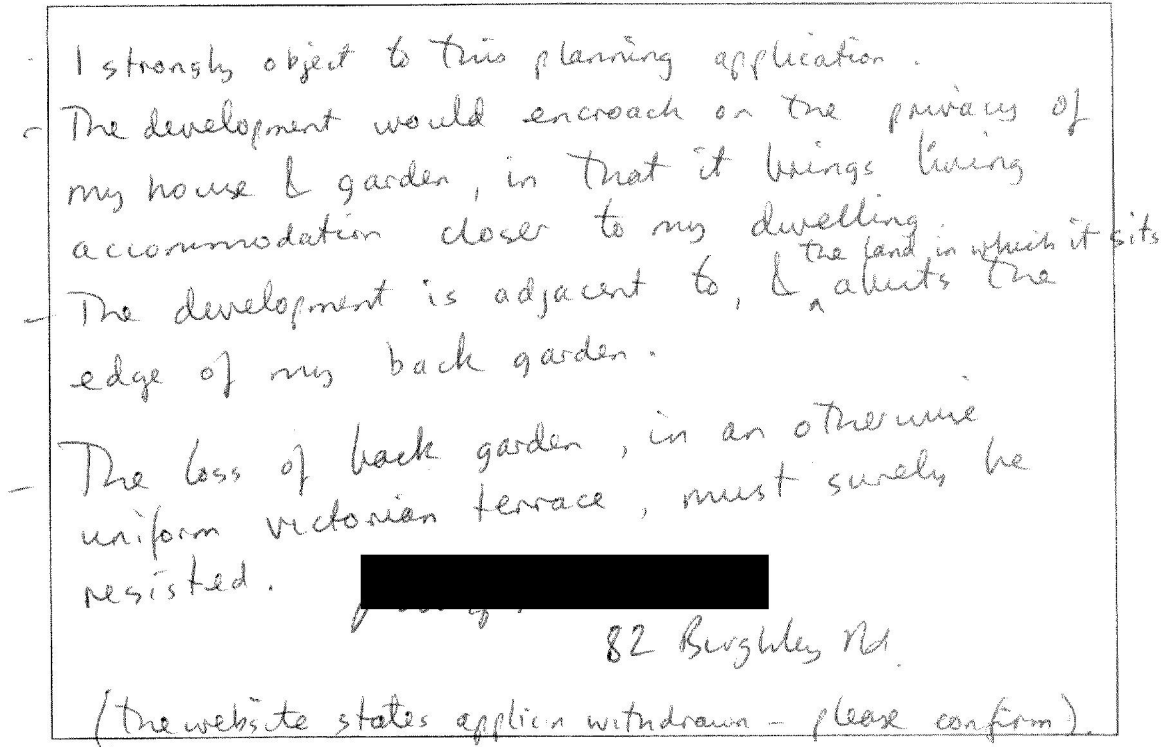 - I strongly object to this planning application.
- The development would encroach on the privacy of
my house & garden, in that it brings living
accommodation closer to my dwelling.
the land in which it sits
- The development is adjacent to, & ^ abuts the
edge of my back garden.
- The loss of back garden, in an otherwise
uniform victorian terrace, must surely be
resisted.
82 Burghley Rd.
(the website states applicn withdrawn - please confirm).